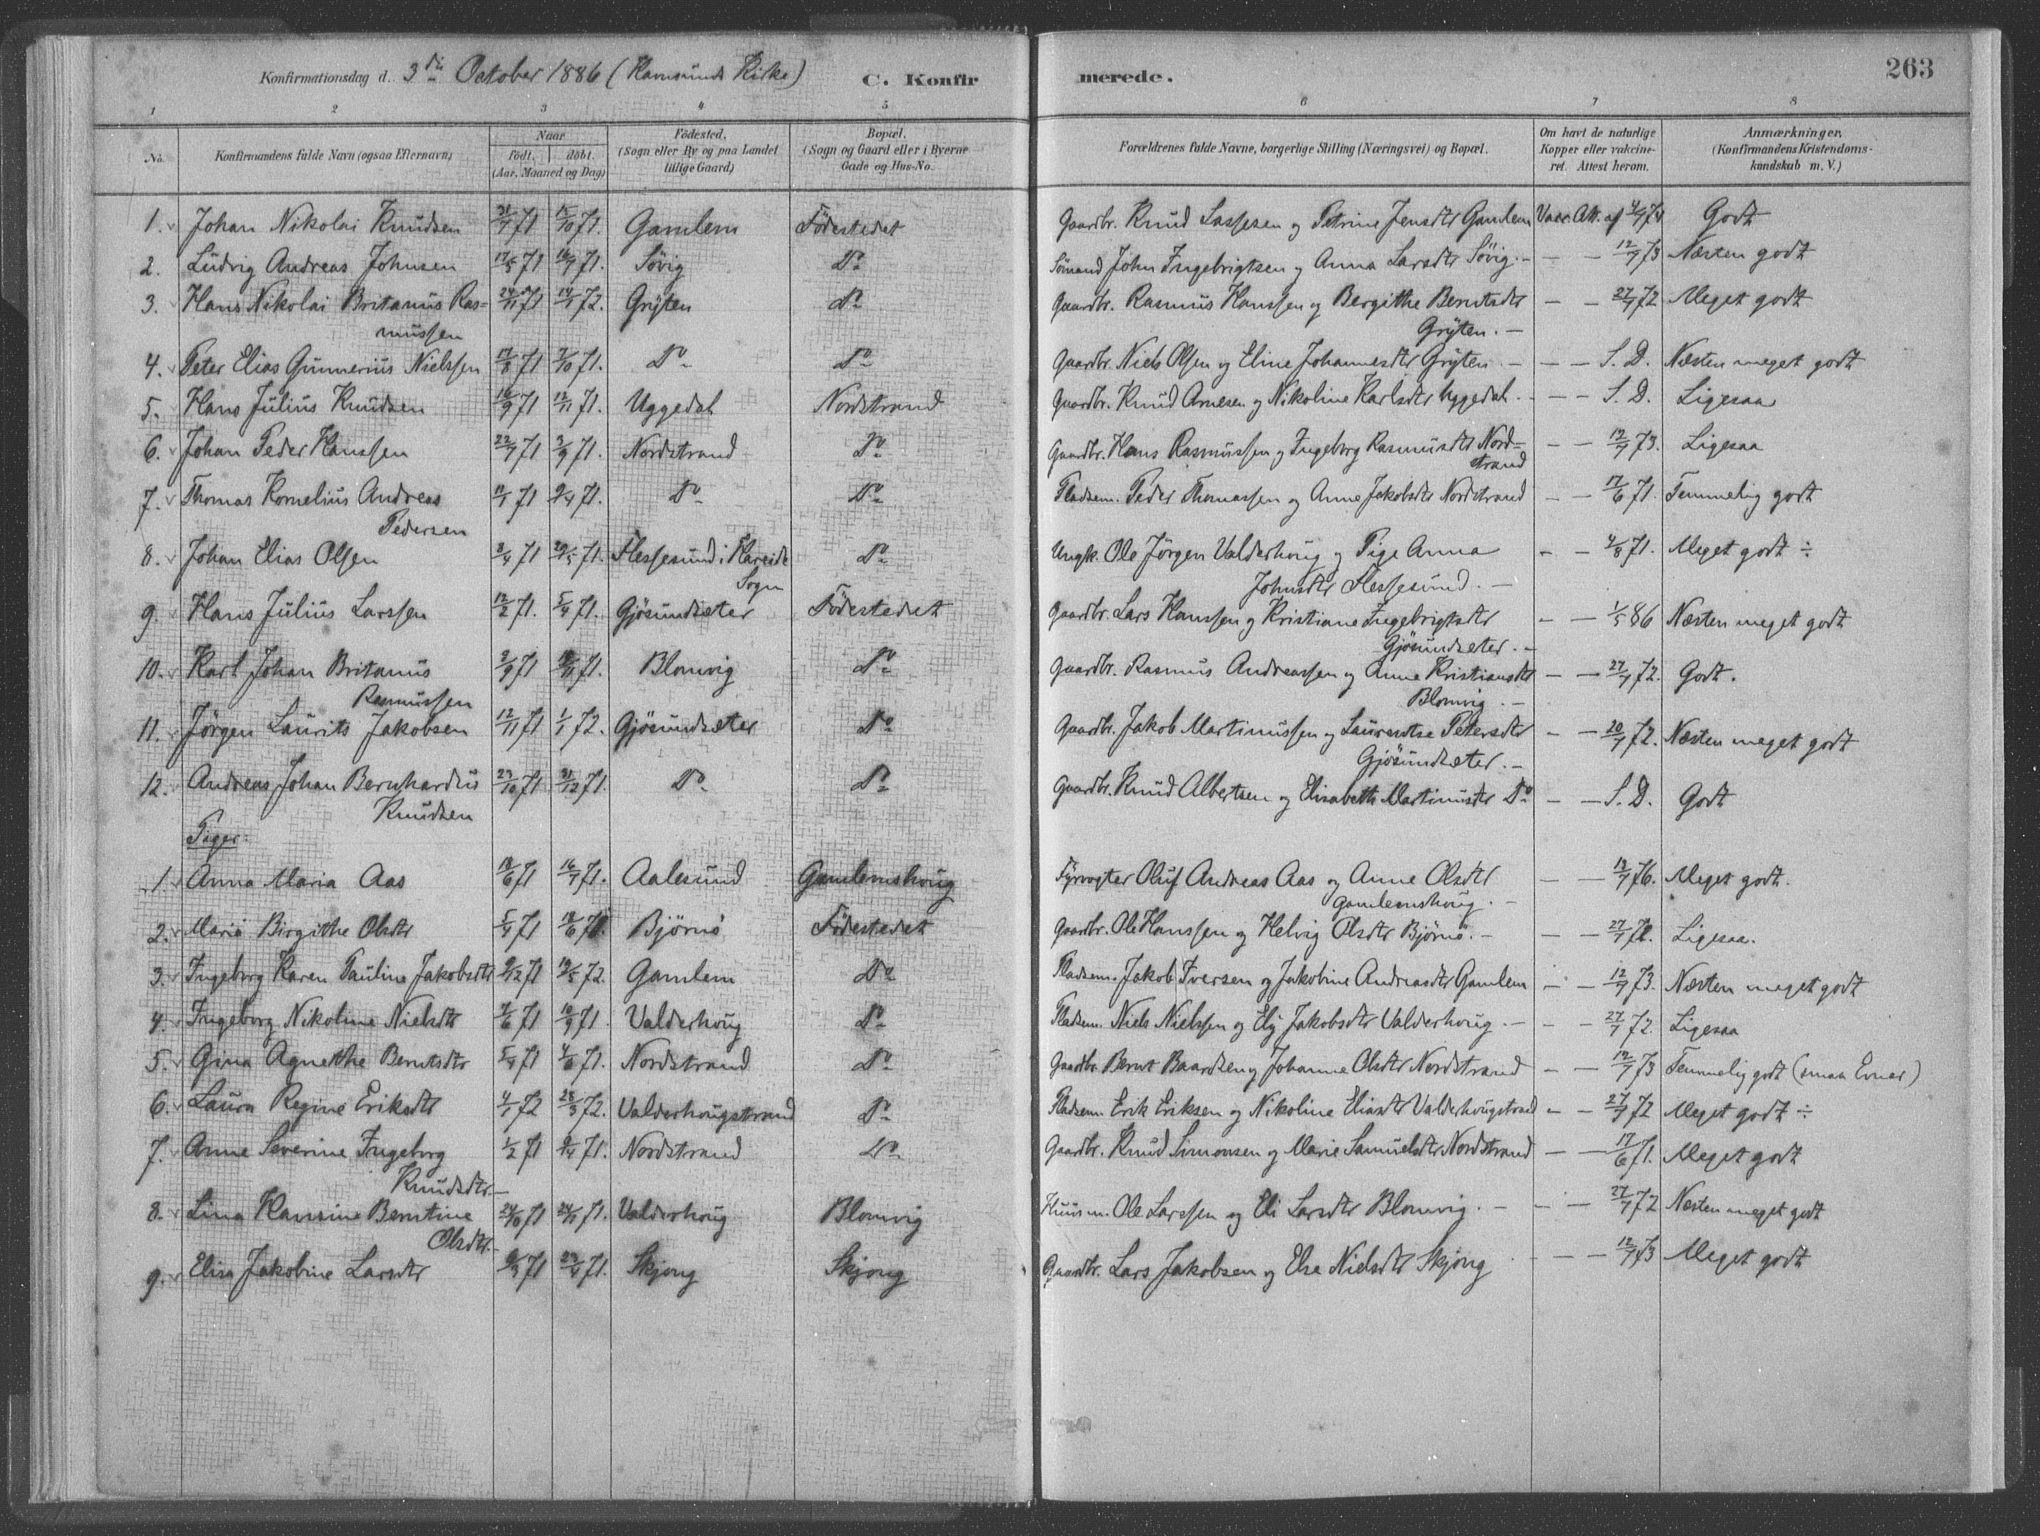 Konfirmationsdag d. 3die October 1886 (Hamsunds Kirke) C. Konfirmerede. 263
1 2 3 4 5 6 7 8
No. Konfirmandens fulde Navn (ogsaa Efternavn) Naar Födt. döbt. (Aar, Maaned og Dag) Födested. (Sogn eller By og paa Landet tillige Gaard) Bopæl. (Sogn og Gaard eller i Byerne Gade og Hus-No. Forældrenes fulde Navne, borgerlige Stilling (Næringsvei) og Bopæl. Om havt de naturlige Kopper eller vakcineret. Attest herom. Anmærkninger. (Konfirmandens Kristendomskundskab m. V.)
1. Johan Nikolai Knudsen 31/7 71 15/10 71. Gamlem Födestedet Gaardbr. Knud Lassesen og Petrine Jensdtr Gamlem Vacc. Att. af 4/7 74 Godt
2. Ludvig Andreas Johnsen 17/5 71 16/7 71. Sövig Do Sömand John Ingebrigtsen og Anna Larsdtr Sövig. — — — 12/7 73 Næsten godt
3. Hans Nikolai Britanus Rasmussen 24/11 71 14/1 72. Gryten do Gaardbr. Rasmus Hanssen og Bergithe Berntsdtr Gryten. — — — 27/7 72 Meget godt
4. Peter Elias Gunnerius Nielssen 17/8 71 7/10 71. Do Do Gaardbr. Niels Olsen og Eline Johannesdtr Gryten. — — — S. D. Næsten meget godt
5. Hans Julius Knudsen 16/9 71 12/11 71. Uggedal Nordstrand Gaardbr. Knud Arnesen og Nikoline Karlsdtr Uggedal. — — S. D. Ligesaa
6. Johan Peder Hanssen 22/7 71 3/9 71. Nordstrand Do Gaardbr. Hans Rasmussen og Ingeborg Rasmusdtr Nordstrand — — 12/7 73. Ligesaa
7. Thomas Kornelius Andreas Pedersen 11/1 71 9/4 71. Do Do Pladsem. Peder Thomassen og Anne Jakobsdtr Nordstrand — — 17/6 71. Temmelig godt
8. Johan Elias Olsen 3/4 71 29/5 71. Flessesund i Hareide Sogn Do Ungk. Ole Jörgen Valderhoug og Pige Anna Johnsdtr Flessesund. — — — 4/8 71. Meget godt ÷
9. Hans Julius Larssen 12/2 71. 5/4 71. Gjösundsæter Födestedet Gaardbr. Lars Hanssen og Kristiane Ingebrigtsdtr Gjösundsæter. — — — 1/5 86 Næsten meget godt
10. Karl Johan Britanus Rasmussen 3/9 71 71. Blomvig Do Gaardbr. Rasmus Andreassen og Anne Kristiansdtr Blomvig. — — — 27/7 72. Godt.
11. Jörgen Laurits Jakobsen 12/11 71 1/1 72. Gjösundsæter Do Gaardbr. Jakob Martinussen og Laurentse Petersdtr Gjösundsæter. — — — 20/7 72. Næsten meget godt
12. Andreas Johan Bernhardus Knudsen 23/10 71 31/12 71. Do Do Gaardbr. Knud Albertsen og Elisabeth Martinusdtr Do — — S. D. Godt
Piger:
1. Anna Maria Aas 18/6 71 16/7 71. Aalesund Gamlemshoug Fyrvogter Oluf Andreas Aas og Anne Olsdtr Gamlemshoug. — — — 12/7 76. Meget godt.
2. Marie Birgithe Olsdtr 5/4 71 18/6 71. Björnö Födestedet Gaardbr. Ole Hanssen og Helvig Olsdtr Björnö. — — — 27/7 72. Ligesaa.
3. Ingeborg Karen Pauline Jakobsdtr 9/12 71 19/5 72. Gamlem Do Pladsem. Jakob Iversen og Jakobine Andreasdtr Gamlem — — 12/7 73. Næsten meget godt
4. Ingeborg Nikoline Nielsdtr 7/6 71 10/9 71. Valderhoug Do Pladsem. Niels Nielssen og Ely Jakobsdtr Valderhoug. — — — 27/7 72. Ligesaa
5. Gina Agnethe Berntsdtr 5/4 71 4/6 71. Nordstrand Do Gaardbr. Bernt Baardsen og Johanne Olsdtr Nordstrand — — 12/7 73 Temmelig godt (smaa Evner)
6. Laura Regine Eriksdtr 4/1 72 28/3 72. Valderhougstrand Do Pladsem. Erik Eriksen og Nikoline Eliasdtr Valderhougstrand — — 27/7 72 Meget godt ÷
7. Anne Severine Ingeborg Knudsdtr. — 1/2 71 9/4 71. Nordstrand Do Gaardbr. Knud Simonsen og Marie Samuelsdtr Nordstrand — — 17/6 71. Meget godt
8. Lina Hansine Berntine Olsdtr. — 24/10 71 71. Valderhoug Blomvig Huusm. Ole Larssen og Eli Larsdtr Blomvig. — — — 27/7 72 Næsten meget godt
9. Elisa Jakobine Larsdtr 71 23/4 71. Skjong Skjong Gaardbr. Lars Jakobsen og Else Nielsdtr Skjong — — 12/7 73 Meget godt